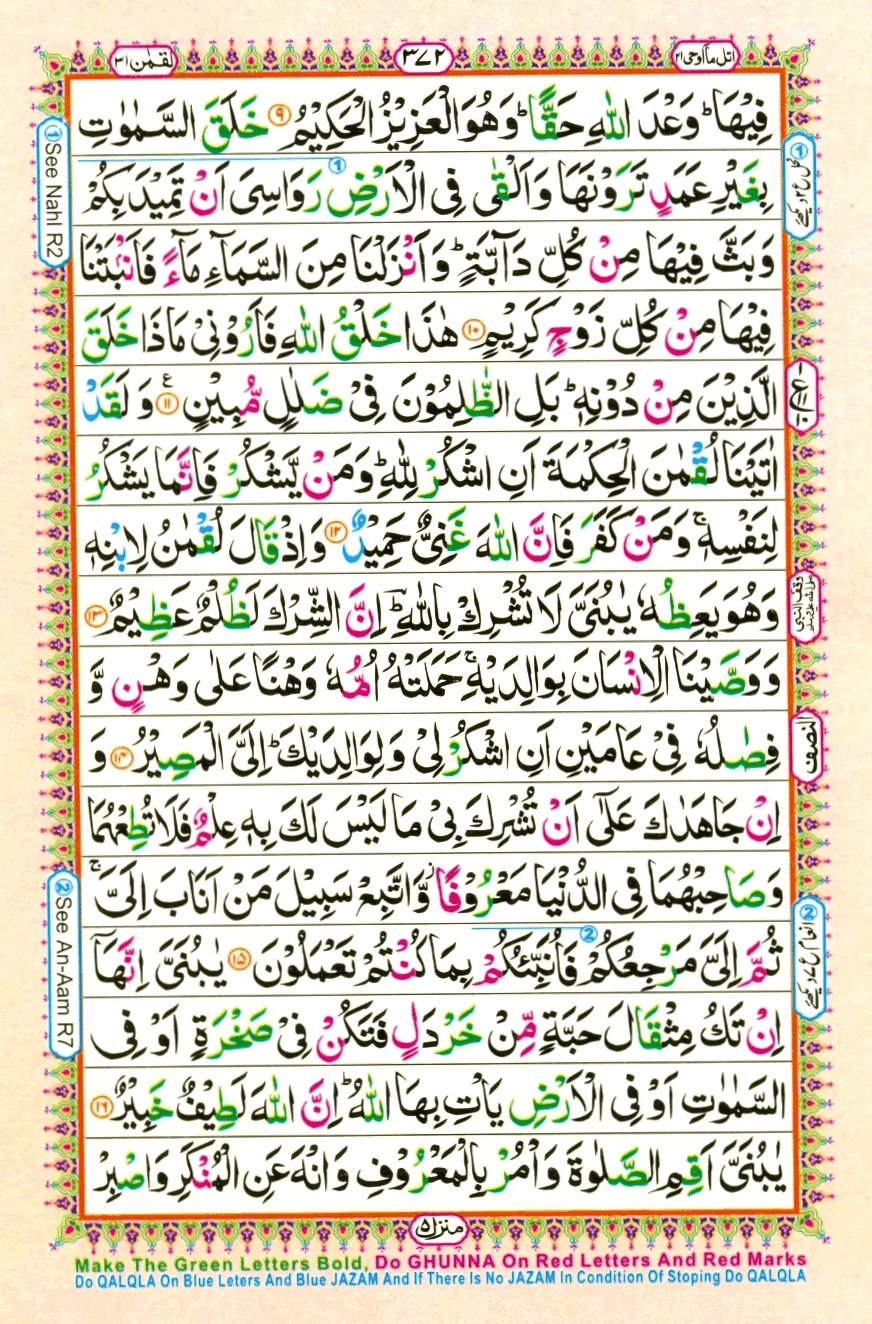 اتل مآ اوحی ۲۱
۳۷۲
لقمٰن ۳۱
فِیْهَا ؕ وَعْدَ اللّٰهِ حَقًّا ؕ وَهُوَ الْعَزِیْزُ الْحَكِیْمُ ۹ خَلَقَ السَّمٰوٰتِ
بِغَیْرِ عَمَدٍ تَرَوْنَهَا وَاَلْقٰی فِی الْاَرْضِ رَوَاسِیَ اَنْ تَمِیْدَ بِكُمْ
وَبَثَّ فِیْهَا مِنْ كُلِّ دَآبَّةٍ ؕ وَاَنْزَلْنَا مِنَ السَّمَآءِ مَآءً فَاَنْۢبَتْنَا
فِیْهَا مِنْ كُلِّ زَوْجٍ كَرِیْمٍ ۱۰ هٰذَا خَلْقُ اللّٰهِ فَاَرُوْنِیْ مَاذَا خَلَقَ
الَّذِیْنَ مِنْ دُوْنِهٖ ؕ بَلِ الظّٰلِمُوْنَ فِیْ ضَلٰلٍ مُّبِیْنٍ ۱۱ ع وَ لَقَدْ
اٰتَیْنَا لُقْمٰنَ الْحِكْمَةَ اَنِ اشْكُرْ لِلّٰهِ ؕ وَمَنْ یَّشْكُرْ فَاِنَّمَا یَشْكُرُ
لِنَفْسِهٖ ۚ وَمَنْ كَفَرَ فَاِنَّ اللّٰهَ غَنِیٌّ حَمِیْدٌ ۱۲ وَاِذْ قَالَ لُقْمٰنُ لِابْنِهٖ
وَهُوَ یَعِظُهٗ یٰبُنَیَّ لَا تُشْرِكْ بِاللّٰهِ ؔؕ اِنَّ الشِّرْكَ لَظُلْمٌ عَظِیْمٌ ۱۳
وَوَصَّیْنَا الْاِنْسَانَ بِوَالِدَیْهِ ۚ حَمَلَتْهُ اُمُّهٗ وَهْنًا عَلٰی وَهْنٍ وَّ
فِصٰلُهٗ فِیْ عَامَیْنِ اَنِ اشْكُرْ لِیْ وَ لِوَالِدَیْكَ ؕ اِلَیَّ الْمَصِیْرُ ۱۴ وَ
اِنْ جَاهَدٰكَ عَلٰۤی اَنْ تُشْرِكَ بِیْ مَا لَیْسَ لَكَ بِهٖ عِلْمٌ فَلَا تُطِعْهُمَا
وَصَاحِبْهُمَا فِی الدُّنْیَا مَعْرُوْفًا ؗ وَّاتَّبِعْ سَبِیْلَ مَنْ اَنَابَ اِلَیَّ ۚ
ثُمَّ اِلَیَّ مَرْجِعُكُمْ فَاُنَبِّئُكُمْ بِمَا كُنْتُمْ تَعْمَلُوْنَ ۱۵ یٰبُنَیَّ اِنَّهَاۤ
اِنْ تَكُ مِثْقَالَ حَبَّةٍ مِّنْ خَرْدَلٍ فَتَكُنْ فِیْ صَخْرَةٍ اَوْ فِی
السَّمٰوٰتِ اَوْ فِی الْاَرْضِ یَاْتِ بِهَا اللّٰهُ ؕ اِنَّ اللّٰهَ لَطِیْفٌ خَبِیْرٌ ۱۶
یٰبُنَیَّ اَقِمِ الصَّلٰوةَ وَاْمُرْ بِالْمَعْرُوْفِ وَانْهَ عَنِ الْمُنْكَرِ وَاصْبِرْ
النصف
① See Nahl R2
② See An-Aam R7
منزل ۵
Make The Green Letters Bold, Do GHUNNA On Red Letters And Red Marks
Do QALQLA On Blue Leters And Blue JAZAM And If There Is No JAZAM In Condition Of Stoping Do QALQLA